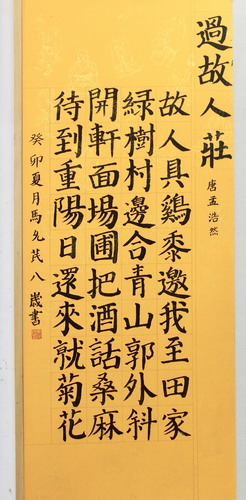 過故人莊
唐孟浩然
故人具鷄黍邀我至田家
綠樹村邊合青山郭外斜
開軒面場圃把酒話桑麻
待到重陽日還來就菊花
癸卯夏月馬允芪八歲書